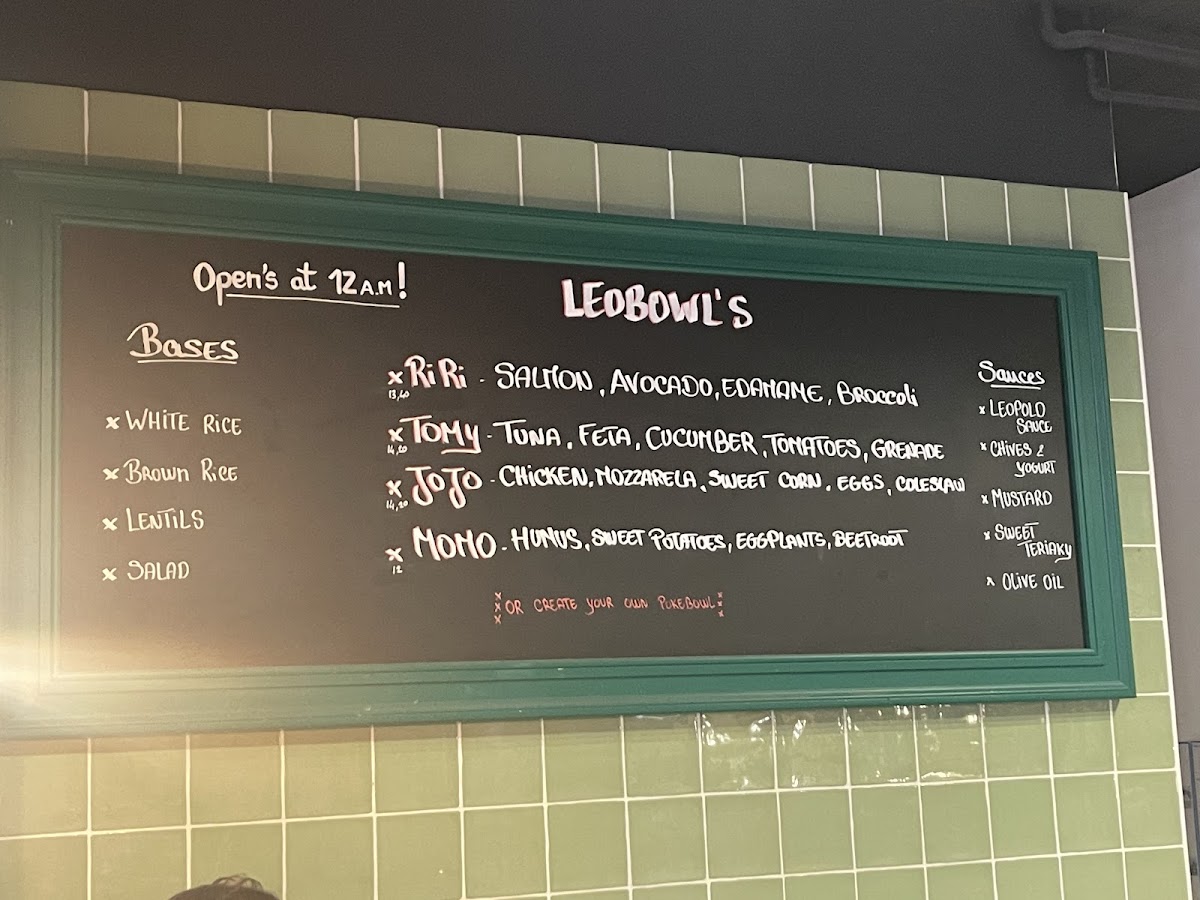 Open's at 12 A.M!
LEOBOWL'S
BASES
x WHITE RICE
x BROWN RICE
x LENTILS
x SALAD
x RiRi - SALMON, AVOCADO, EDAMAME, BROCCOLI
13,40
x TOMY - TUNA, FETA, CUCUMBER, TOMATOES, GRENADE
14,20
x JOJO - CHICKEN, MOZZARELA, SWEET CORN, EGGS, COLESLAW
14,20
x MOMO - HUMUS, SWEET POTATOES, EGGPLANTS, BEETROOT
12
OR CREATE YOUR OWN POKEBOWL
Sauces
x LEOPOLD
SAUCE
x CHIVES &
YOGURT
x MUSTARD
x SWEET
TERIAKY
x OLIVE OIL